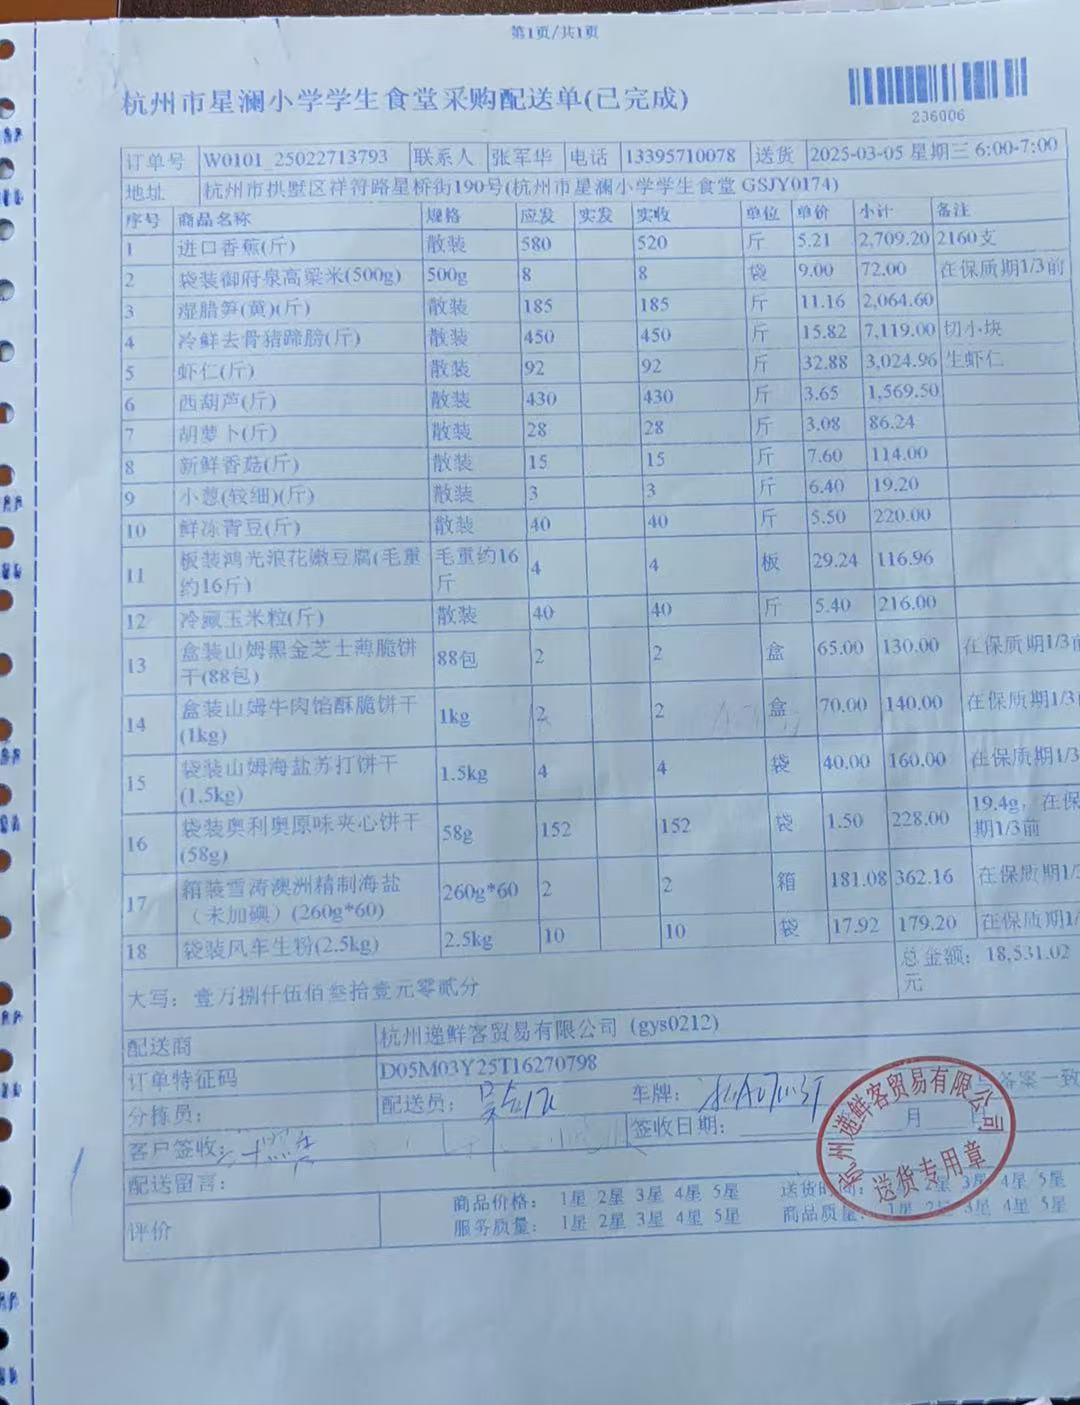 第1页/共1页
杭州市星澜小学学生食堂采购配送单(已完成)
236006
订单号 W0101_25022713793 联系人 张军华 电话 13395710078 送货 2025-03-05 星期三 6:00-7:00
地址 杭州市拱墅区祥符路星桥街190号(杭州市星澜小学学生食堂 GSJY0174)
序号 商品名称 规格 应发 实发 实收 单位 单价 小计 备注
1 进口香蕉(斤) 散装 580 520 斤 5.21 2,709.20 2160支
2 袋装御府泉高粱米(500g) 500g 8 8 袋 9.00 72.00 在保质期1/3前
3 湿腊笋(黄)(斤) 散装 185 185 斤 11.16 2,064.60
4 冷鲜去骨猪蹄膀(斤) 散装 450 450 斤 15.82 7,119.00 切小块
5 虾仁(斤) 散装 92 92 斤 32.88 3,024.96 生虾仁
6 西葫芦(斤) 散装 430 430 斤 3.65 1,569.50
7 胡萝卜(斤) 散装 28 28 斤 3.08 86.24
8 新鲜香菇(斤) 散装 15 15 斤 7.60 114.00
9 小葱(较细)(斤) 散装 3 3 斤 6.40 19.20
10 鲜冻青豆(斤) 散装 40 40 斤 5.50 220.00
11 板装鸿光浪花嫩豆腐(毛重约16斤) 毛重约16斤 4 4 板 29.24 116.96
12 冷藏玉米粒(斤) 散装 40 40 斤 5.40 216.00
13 盒装山姆黑金芝士薄脆饼干(88包) 88包 2 2 盒 65.00 130.00 在保质期1/3前
14 盒装山姆牛肉馅酥脆饼干(1kg) 1kg 2 2 盒 70.00 140.00 在保质期1/3
15 袋装山姆海盐苏打饼干(1.5kg) 1.5kg 4 4 袋 40.00 160.00 在保质期1/3
16 袋装奥利奥原味夹心饼干(58g) 58g 152 152 袋 1.50 228.00 19.4g，在保
期1/3前
17 箱装雪涛澳洲精制海盐（未加碘）(260g*60) 260g*60 2 2 箱 181.08 362.16 在保质期1/
18 袋装风车生粉(2.5kg) 2.5kg 10 10 袋 17.92 179.20 在保质期1/
大写：壹万捌仟伍佰叁拾壹元零贰分 总金额：18,531.02元
配送商 杭州递鲜客贸易有限公司 (gys0212)
订单特征码 D05M03Y25T16270798
分拣员： 配送员： 车牌： 备案一致
客户签收： 签收日期： 月
配送留言：
评价 商品价格： 1星 2星 3星 4星 5星 送货时间： 2星 3星 4星 5星
服务质量： 1星 2星 3星 4星 5星 商品质量： 1星 2星 3星 4星 5星
杭州递鲜客贸易有限公司
送货专用章